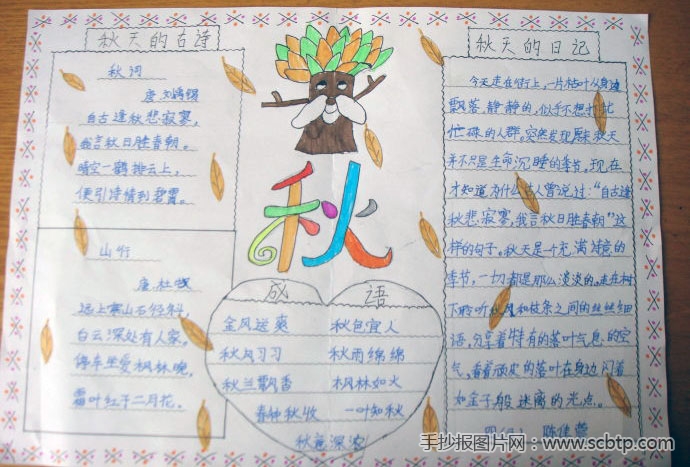 秋天的古诗
秋词
唐 刘禹锡
自古逢秋悲寂寥，
我言秋日胜春朝。
晴空一鹤排云上，
便引诗情到碧霄。
山行
唐 杜牧
远上寒山石径斜，
白云深处有人家。
停车坐爱枫林晚，
霜叶红于二月花。
秋
成 语
金风送爽 秋色宜人
秋风习习 秋雨绵绵
秋兰飘香 枫林如火
春种秋收 一叶知秋
秋意深浓
秋天的日记
今天走在街上，一片枯叶从身边
飘落，静静的，似乎不想打扰
忙碌的人群。突然发现原来秋天
并不只是生命沉睡的季节。现在
才知道为什么古人曾说过：“自古逢
秋悲寂寥，我言秋日胜春朝”这
样的句子。秋天是个充满诗意的
季节，一切都是那么淡淡的。走在树
下聆听秋风和枝条之间的丝丝细
语，匀着特有的落叶气息的空
气，看着顽皮的落叶在身边闪着
如金子般迷离的光点。
手抄报图片网：www.scbtp.com